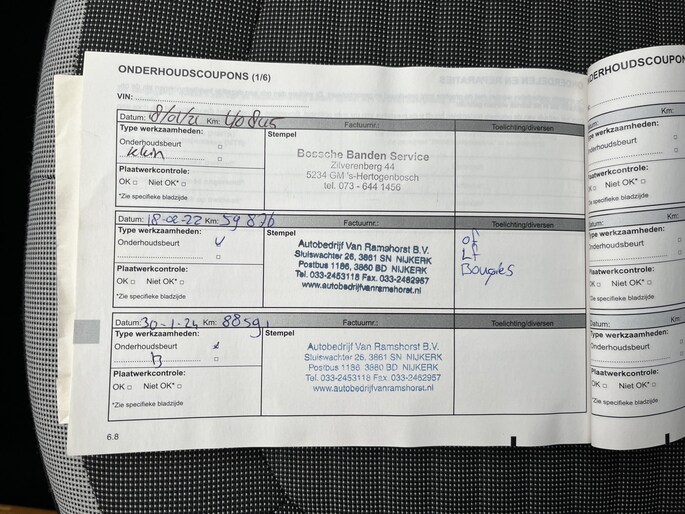 ONDERHOUDSCOUPONS (1/6)
VIN:
Datum: 8/01/21 Km: 40845 Factuurnr.: Toelichting/diversen
Type werkzaamheden: Stempel
Onderhoudsbeurt
klein
Plaatwerkcontrole:
OK Niet OK*
*Zie specifieke bladzijde
Bossche Banden Service
Zilverenberg 44
5234 GM 's-Hertogenbosch
tel. 073 - 644 1456
Datum: 18-02-22 Km: 59 876 Factuurnr.: Toelichting/diversen
Type werkzaamheden: Stempel
Onderhoudsbeurt
Plaatwerkcontrole:
OK Niet OK*
*Zie specifieke bladzijde
Autobedrijf Van Ramshorst B.V.
Sluiswachter 26, 3861 SN NIJKERK
Postbus 1186, 3860 BD NIJKERK
Tel. 033-2453118 Fax. 033-2462957
www.autobedrijfvanramshorst.nl
of
Lf
Bougies
Datum: 30-1-24 Km: 88591 Factuurnr.: Toelichting/diversen
Type werkzaamheden: Stempel
Onderhoudsbeurt
B
Plaatwerkcontrole:
OK Niet OK*
*Zie specifieke bladzijde
Autobedrijf Van Ramshorst B.V.
Sluiswachter 26, 3861 SN NIJKERK
Postbus 1186 3860 BD NIJKERK
Tel. 033-2453118 Fax. 033-2462957
www.autobedrijfvanramshorst.nl
6.8
Datum:
Type werkzaamheden:
Onderhoudsbeurt
Plaatwerkcontrole:
OK Niet OK*
*Zie specifieke bladzijde
Datum:
Type werkzaamheden:
Onderhoudsbeurt
Plaatwerkcontrole:
OK Niet OK*
*Zie specifieke bladzijde
Datum:
Type werkzaamheden:
Onderhoudsbeurt
Plaatwerkcontrole:
OK Niet OK*
*Zie specifieke bladzijde